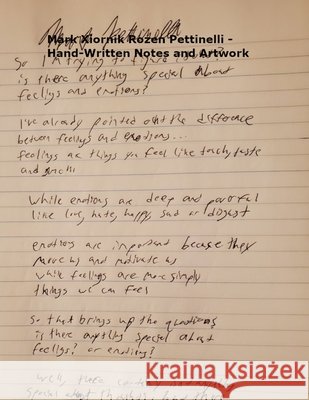 Mark Xiornik Rozen Pettinelli -
Hand-Written Notes and Artwork
So I'm trying to figure
is there anything special about
feelings and emotions?
I've already pointed out the difference
between feelings and emotions...
feelings are things you feel like touch, taste
and smell
while emotions are deep and powerful
like love, hate, happy, sad or disgust
emotions are important because they
move us and motivate us
while feelings are more simply
things we can feel
So that brings up the questions
is there anything special about
feelings? or emotions?
well, there
special about thoughts and